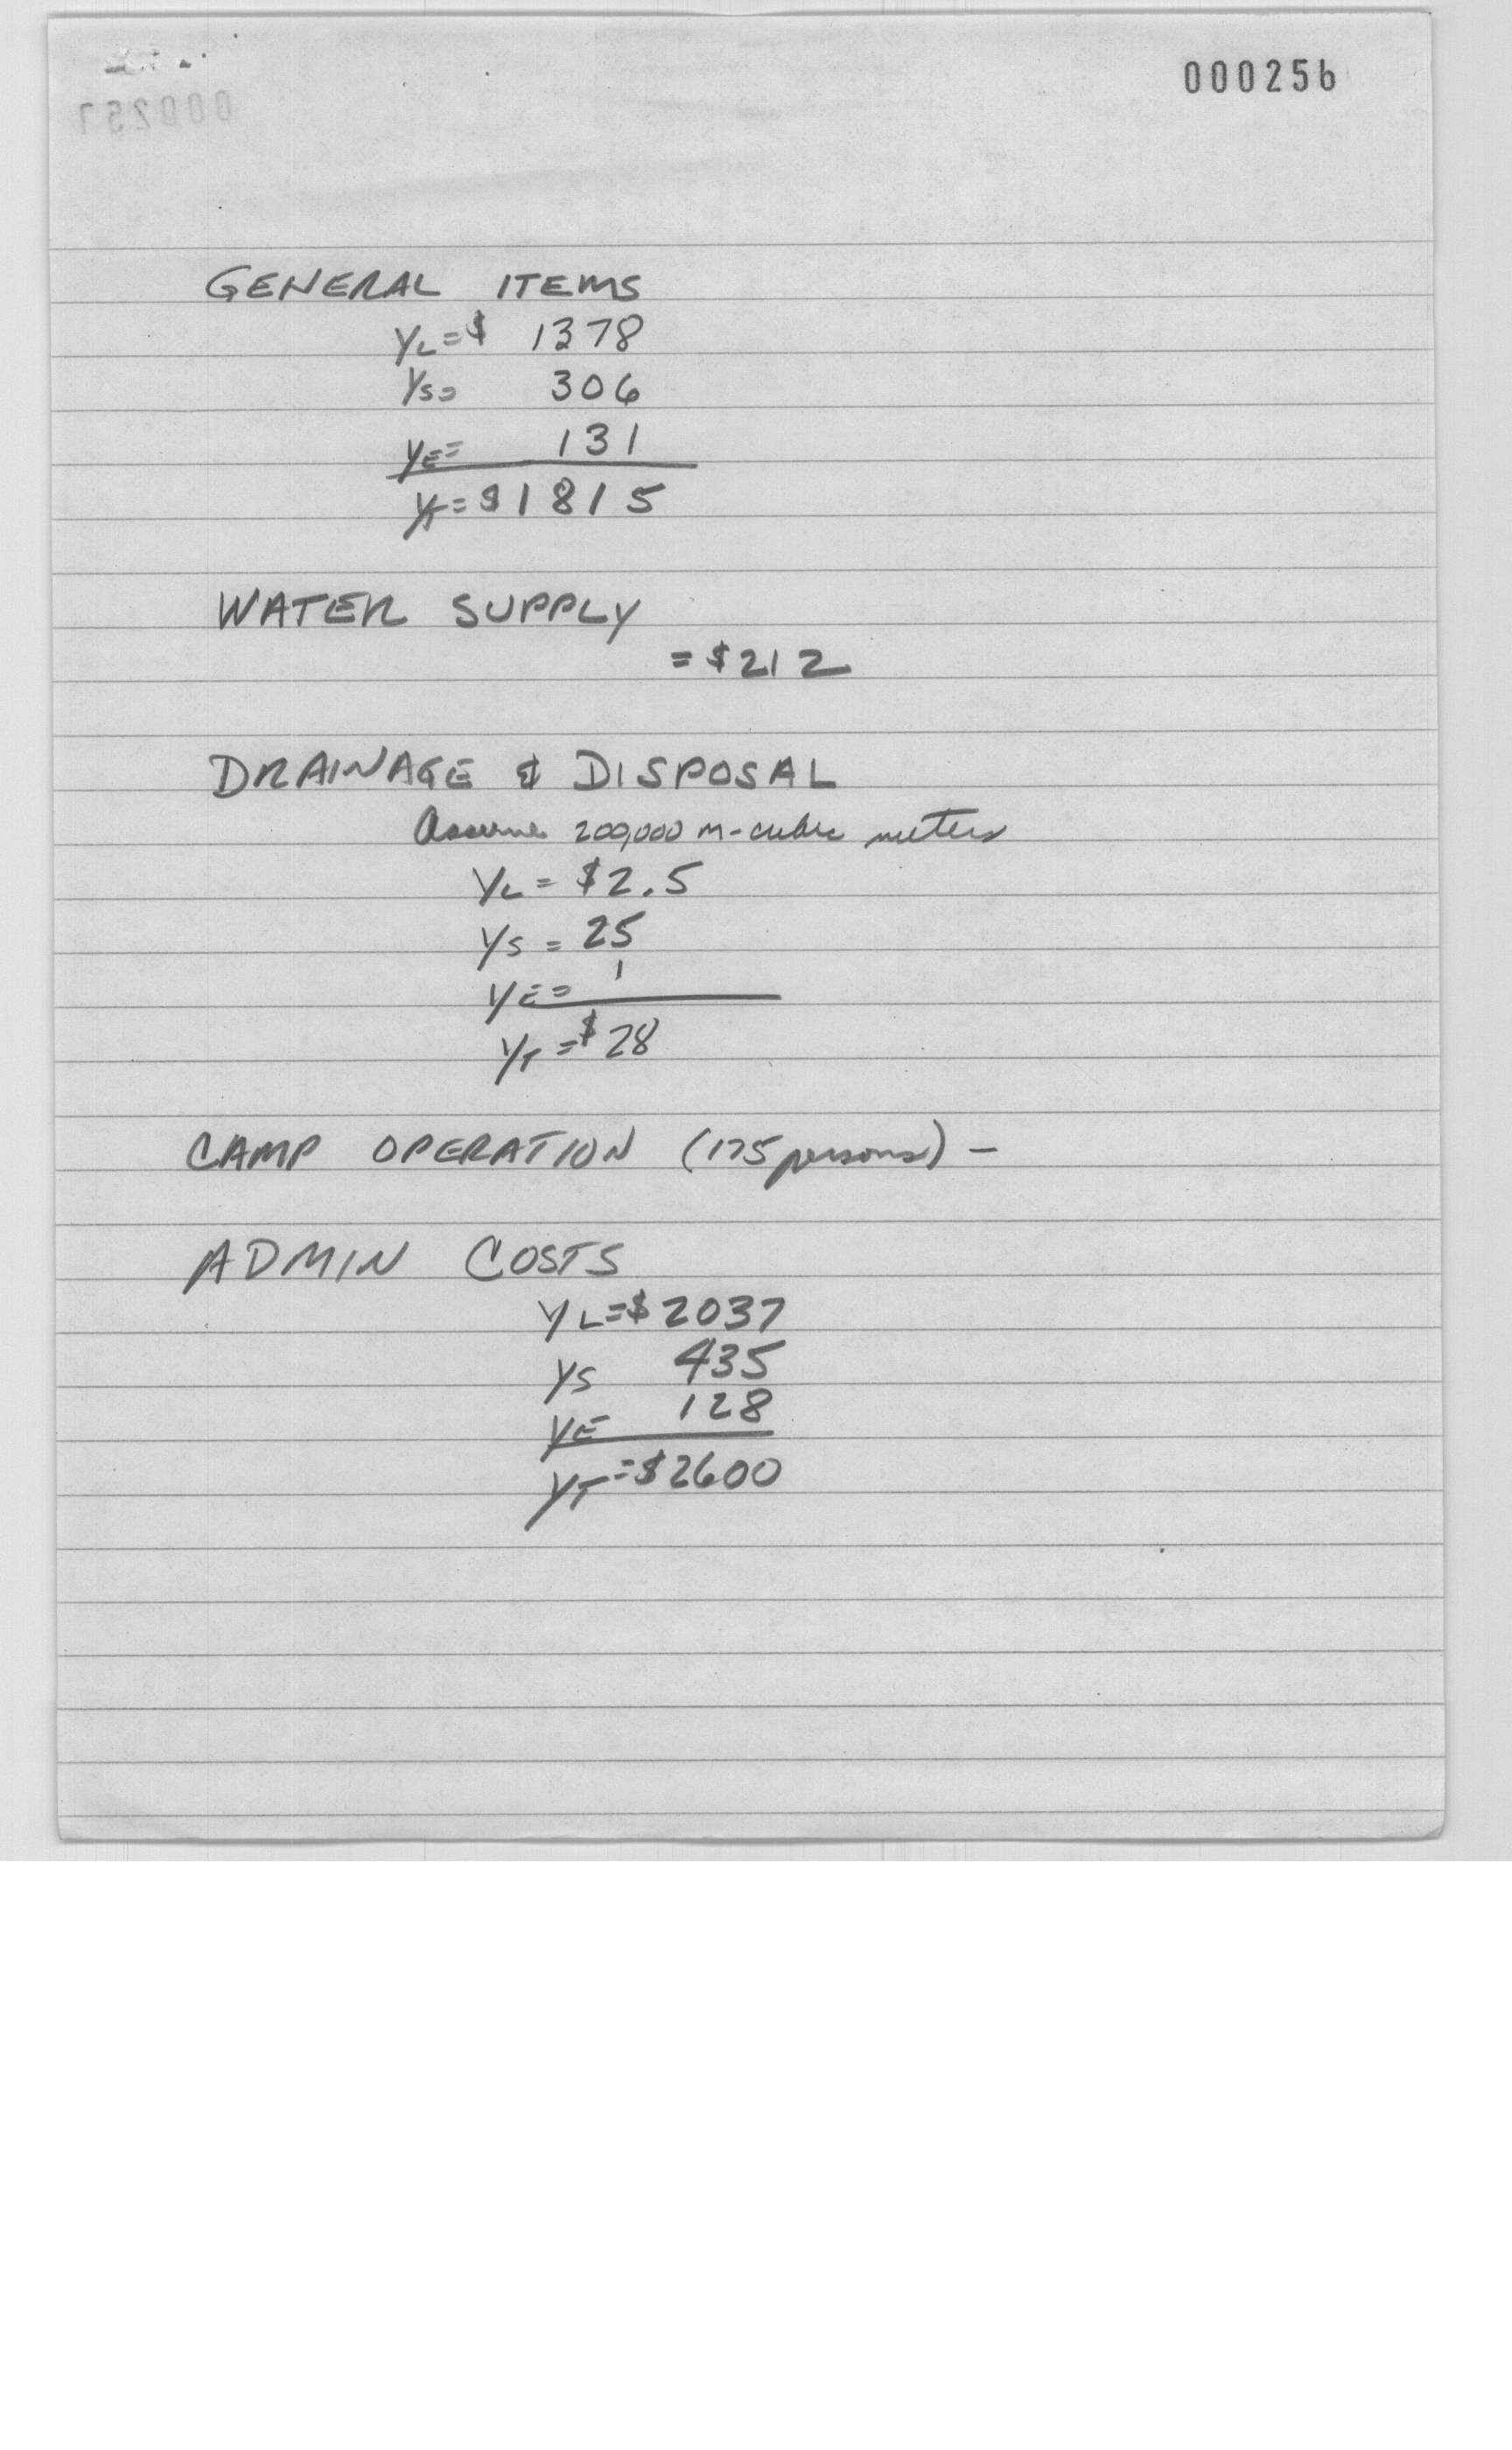 000256
GENERAL ITEMS
YL = $ 1378
YS = 306
YE = 131
YT = $1815
WATER SUPPLY
= $212
DRAINAGE & DISPOSAL
Assume 200,000 m-cubic meters
YL = $2.5
YS = 25
YE = 1
YT = $28
CAMP OPERATION (175 persons) -
ADMIN COSTS
YL = $2037
YS 435
YE 128
YT = $2600